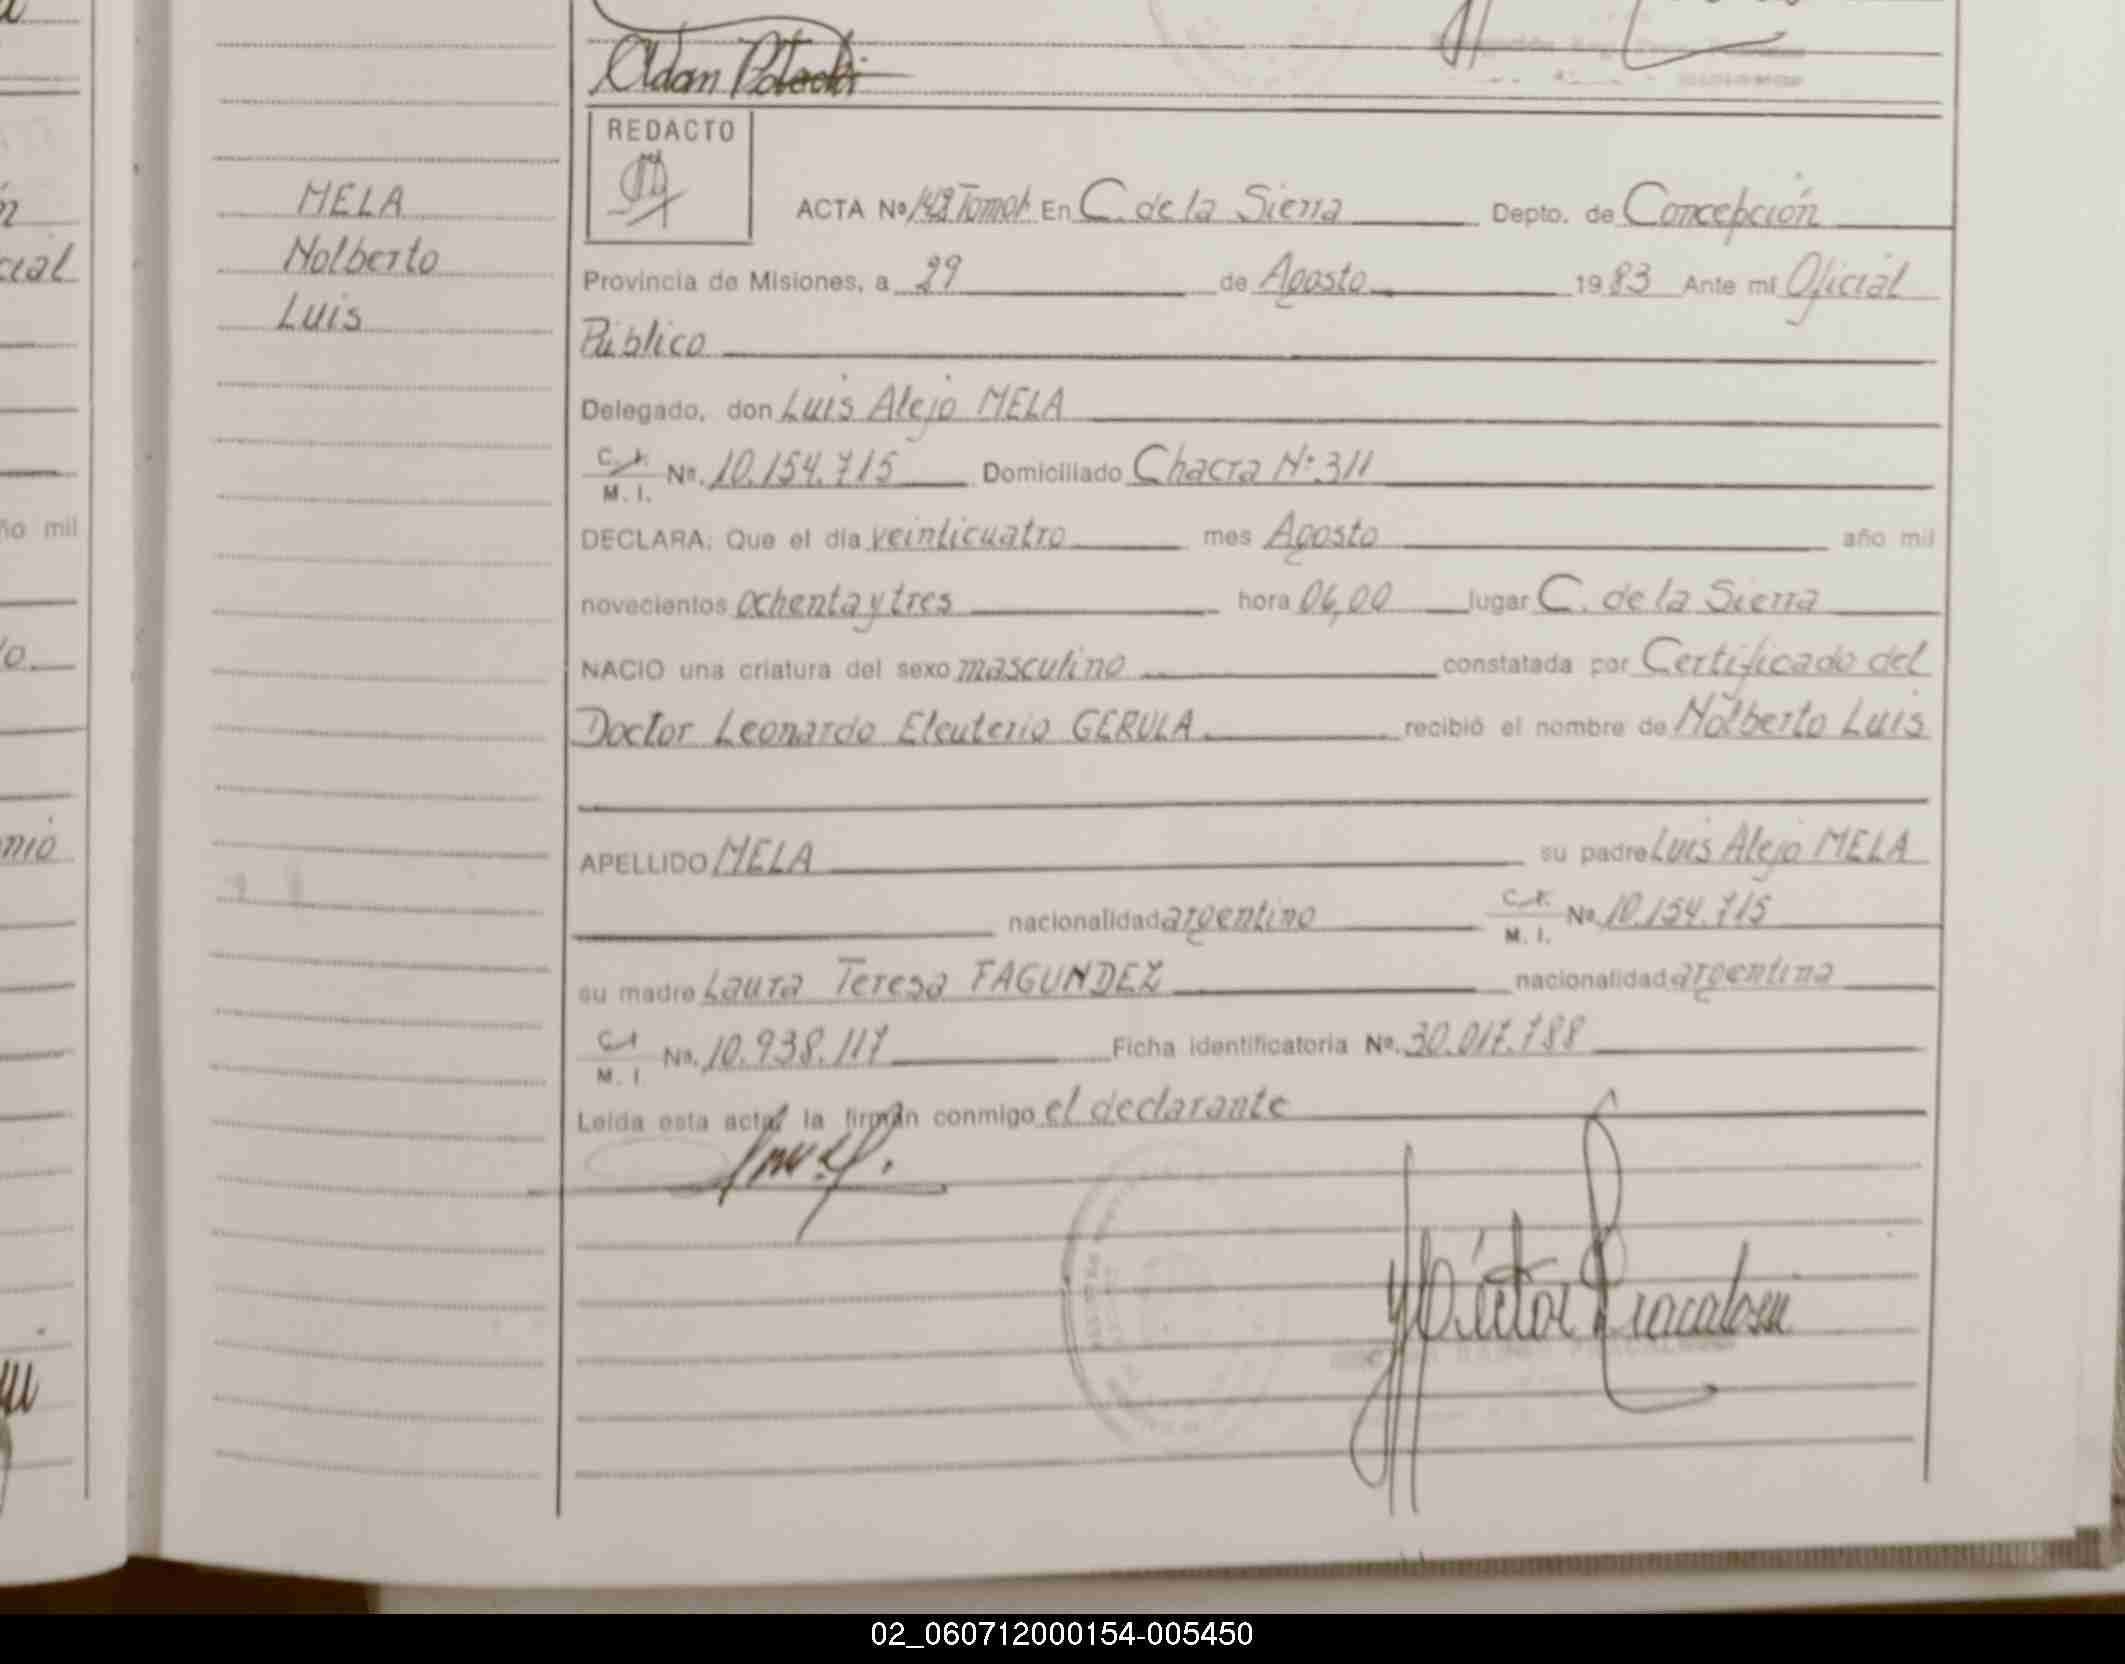 Adan
REDACTO
MELA
Nolberto
Luis
ACTA Nº 148 Tomo I En C. de la Sierra Depto. de Concepción
Provincia de Misiones, a 29 de Agosto 1983 Ante mí Oficial
Público
Delegado, don Luis Alejo MELA
C. I. M. I. Nº. 10.154.715 Domiciliado Chacra Nº 311
DECLARA: Que el día veinticuatro mes Agosto año mil
novecientos ochenta y tres hora 06,00 lugar C. de la Sierra
NACIO una criatura del sexo masculino constatada por Certificado del
Doctor Leonardo Eleuterio GERULA recibió el nombre de Nolberto Luis
APELLIDO MELA su padre Luis Alejo MELA
nacionalidad argentino C. I. M. I. Nº 10.154.715
su madre Laura Teresa FAGUNDEZ nacionalidad argentina
C. I. M. I. Nº. 10.938.117 Ficha identificatoria Nº. 30.017.788
Leída esta acta, la firman conmigo el declarante
02_060712000154-005450